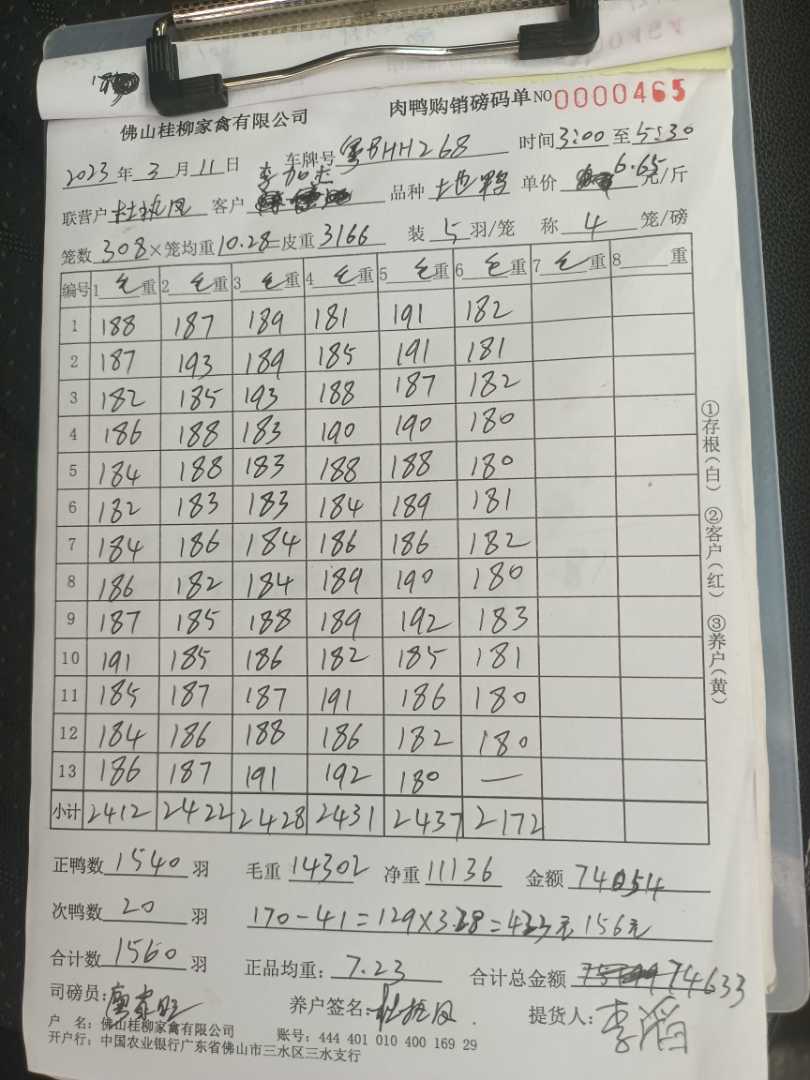 佛山桂柳家禽有限公司 肉鸭购销磅码单 NO 0000465
2023年3月11日 车牌号 粤BHH268 时间 3:00 至 5:30
联营户 杜振凤 客户 李加杰 品种 土也鸭 单价 6.65 元/斤
笼数 308 × 笼均重 10.28 皮重 3166 装 5 羽/笼 称 4 笼/磅
编号 1 毛重 2 毛重 3 毛重 4 毛重 5 毛重 6 毛重 7 毛重 8 重
1 188 187 189 181 191 182
2 187 193 189 185 191 181
3 182 185 193 188 187 182
4 186 188 183 190 190 180
5 184 188 183 188 188 180
6 182 183 183 184 189 181
7 184 186 184 186 186 182
8 186 182 184 189 190 180
9 187 185 188 189 192 183
10 191 185 186 182 185 181
11 185 187 187 191 186 180
12 184 186 188 186 182 180
13 186 187 191 192 180 —
小计 2412 2422 2428 2431 2437 2172
正鸭数 1540 羽 毛重 14302 净重 11136 金额 74054
次鸭数 20 羽 170-41=129×3.28=423元 156元
合计数 1560 羽 正品均重: 7.23 合计总金额 74633
司磅员: 养户签名: 杜振凤 提货人: 李滔
户 名: 佛山桂柳家禽有限公司 账号: 444 401 010 400 169 29
开户行: 中国农业银行广东省佛山市三水区三水支行
①存根(白) ②客户(红) ③养户(黄)